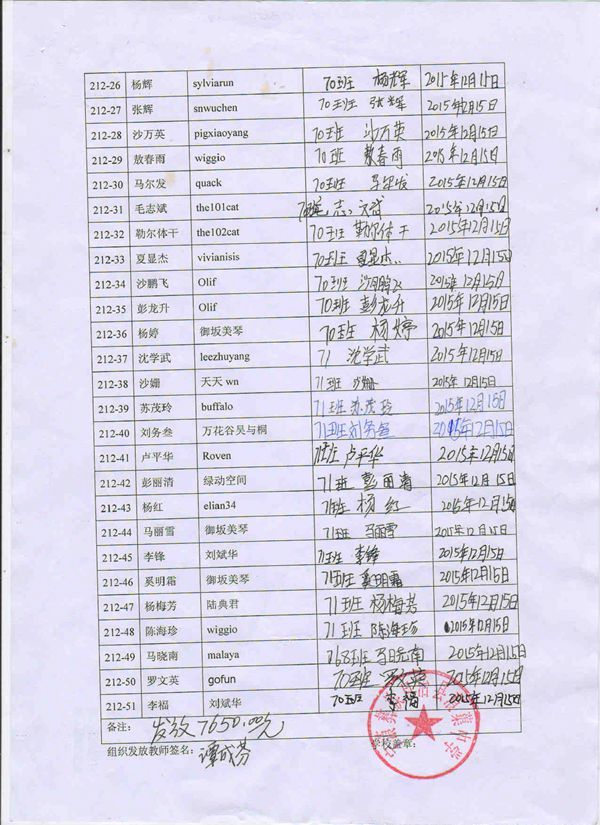 212-26 杨辉 sylviarun 70班 杨辉 2015年12月15日
212-27 张辉 snwuchen 70班 张辉 2015年12月15日
212-28 沙万英 pigxiaoyang 70班 沙万英 2015年12月15日
212-29 敖春雨 wiggio 70班 敖春雨 2015年12月15日
212-30 马尔发 quack 70班 马尔发 2015年12月15日
212-31 毛志斌 the101cat 志斌 2015年12月15日
212-32 勒尔体干 the102cat 70班 勒尔体干 2015年12月15日
212-33 夏显杰 vivianisis 70班 夏显杰 2015年12月15日
212-34 沙鹏飞 Olif 70班 沙鹏飞 2015年12月15日
212-35 彭龙升 Olif 70班 彭龙升 2015年12月15日
212-36 杨婷 御坂美琴 70班 杨婷 2015年12月15日
212-37 沈学武 leezhuyang 71 沈学武 2015年12月15日
212-38 沙姗 天天 wn 71班 沙姗 2015年12月15日
212-39 苏茂玲 buffalo 71班 苏茂玲 2015年12月15日
212-40 刘务叁 万花谷吴与桐 71班 刘务叁 2015年12月15日
212-41 卢平华 Roven 71班 卢平华 2015年12月15日
212-42 彭丽清 绿动空间 71班 彭丽清 2015年12月15日
212-43 杨红 elian34 71班 杨红 2015年12月15日
212-44 马丽雪 御坂美琴 71班 马丽雪 2015年12月15日
212-45 李锋 刘斌华 71班 李锋 2015年12月15日
212-46 奚明霜 御坂美琴 71班 奚明霜 2015年12月15日
212-47 杨梅芳 陆典君 71班 杨梅芳 2015年12月15日
212-48 陈海珍 wiggio 71班 陈海珍 2015年12月15日
212-49 马晓南 malaya 68班 马晓南 2015年12月15日
212-50 罗文英 gofun 70班 罗文英 2015年12月15日
212-51 李福 刘斌华 70班 李福 2015年12月15日
备注: 发放7650.00元
组织发放教师签名: 谭成芬 学校盖章: